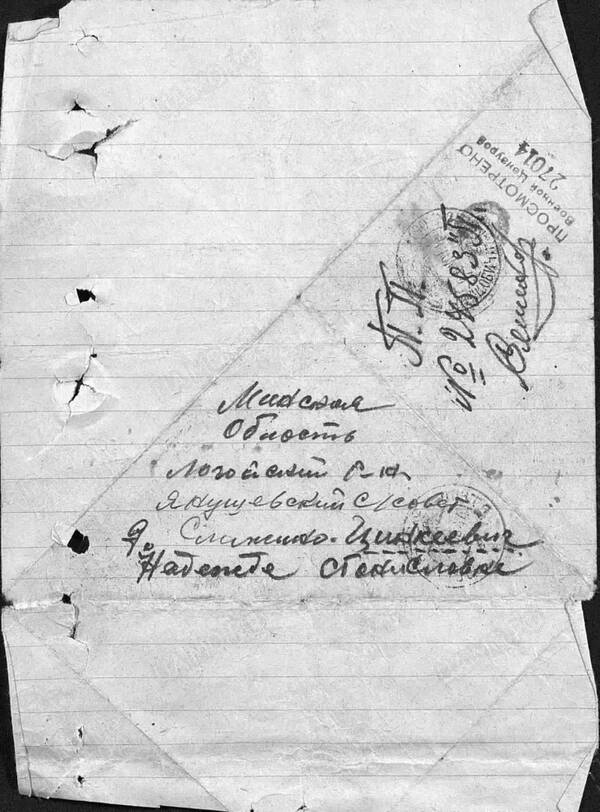 ПРОСМОТРЕНО
Военной Цензурой
27014
П.П.
№ 24583 "П"
Минская
Область
Логойский р-н
Янушевский с/совет
д. Цинкевич
Надежде Станиславне